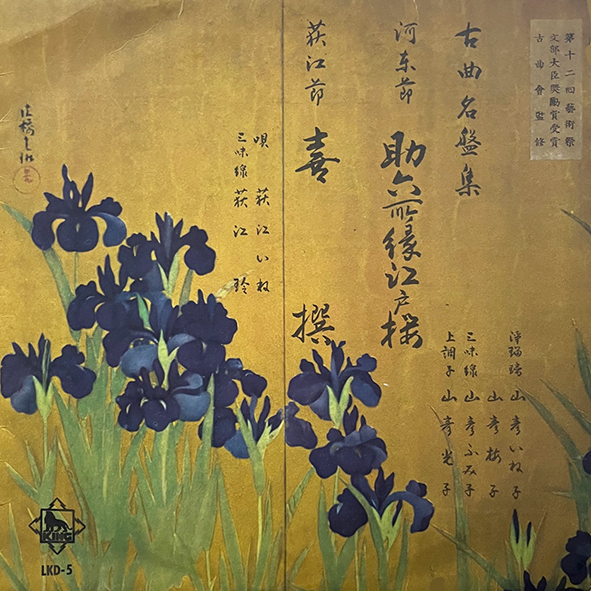 第十二回藝術祭
文部大臣奨励賞受賞
古曲會監修
古曲名盤集
河东節
助六所縁江戸桜
浄瑠璃 山彦いね子
山彦梅子
三味線 山彦ふみ子
上調子 山彦光子
荻江節
喜撰
唄 荻江いね
三味線 荻江玲
KING
LKD-5